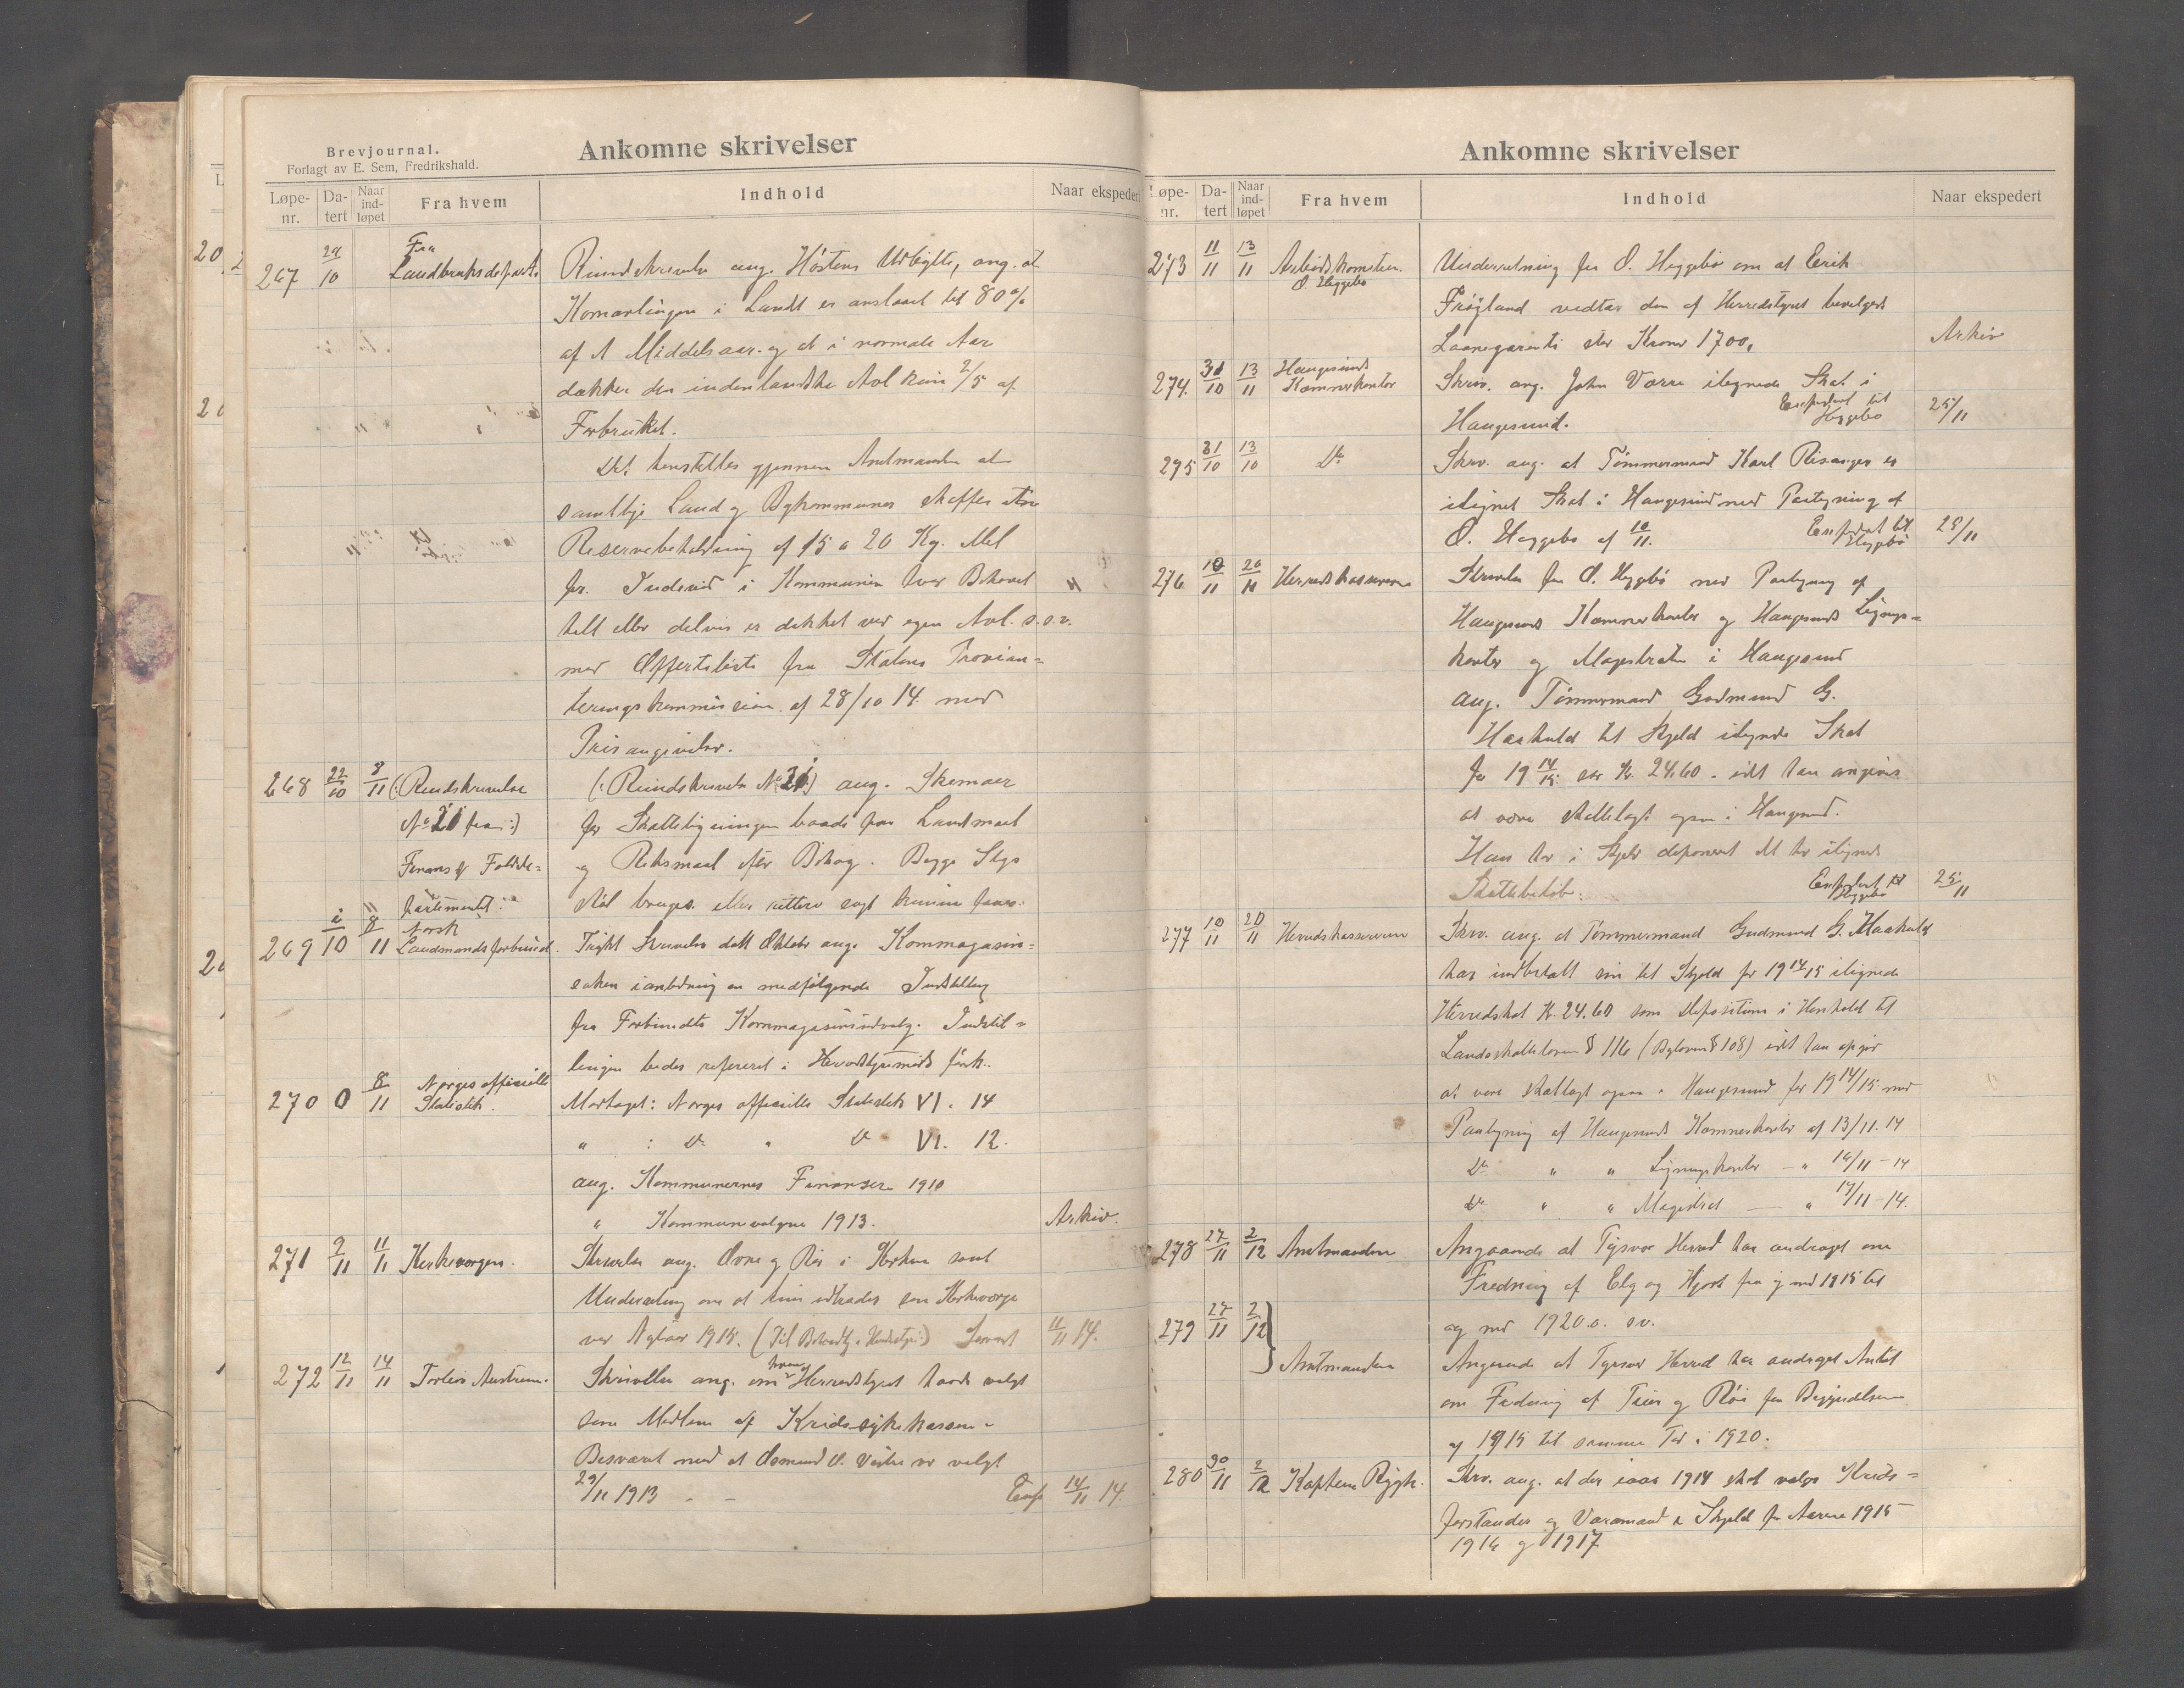 Brevjournal.
Forlagt av E. Sem, Fredrikshald.
Ankomne skrivelser
Løpe-nr. Da-tert Naar ind-løpet Fra hvem Indhold Naar ekspedert
267 29/10 Fra Landbruksdepart. Rundskrivelse ang. Høstens Udbytte, ang. at
Kornavlingen i Landt er anslaaet til 80%
af 1 Middelsaar og at i normale Aar
dækker den indenlandske Avl kun 2/5 af
Forbruket.
Det henstilles gjennem Amtmanden at
samtlige Land og Bykommuner skaffer
Reservebeholdning af 15 a 20 Kg. Mel
pr. Individ i Kommunen hvor Behovet
helt eller delvis er dekket ved egen Avl. o.s.v.
med Offertliste fra Statens Provian=
teringskommission af 28/10 14 med
Prisangivelse.
268 22/10 8/11 (:Rundskrivelse (:Rundskrivelse No 21:) ang. Skemaer
No 21 fra:) for Skatteligningen baade paa Landsmaal
Finans og Toldde= og Riksmaal efter Behag. Begge Slgs
partimentet skal bruges eller
269 /10 8/11 Norsk Landmandsforbund. Trykt Skrivelse dat. Oktober ang. Kornmagasin=
saken i anledning en medfølgende Indstilling
fra Forbundets Kornmagasinsudvalg. Indstil=
lingen bedes refereret i Herredstyremøde
270 0 8/11 Norges officielle Statistik. Modtaget: Norges officielle Statistik VI. 14
" : Do " Do VI. 12.
ang. Kommunernes Finanser 1910
" Kommunevalgene 1913. Arkiv.
271 9/11 11/11 Kirkevergen. Skrivelse ang. Ovne og Rør i Kirken samt
Underretning om at han udtræder som Kirkeverge
ved Nytaar 1915. (Til Behandlg. i Herredstyre:) 11/11 14.
272 12/11 14/11 Torleiv Austrem. Skrivelse ang. om hvem Herredstyret havde valgt
som Medlem af Kredssykekassen.
Besvaret med at Osmund O. var valgt
29/11 1913 - - Exp 14/11 14.
Ankomne skrivelser
Løpe-nr. Da-tert Naar ind-løpet Fra hvem Indhold Naar ekspedert
273 11/11 13/11 O. Heggebø Underretning fra O. Heggebø om at Eerik
Frøyland vedtar den af Herredstyret bevilgede
Laanegaranti stor Kroner 1700, Arkiv
274. 31/10 13/11 Haugesunds Kæmnerkontor Skriv. ang. John Vorre ilignede Skat i
Haugesund. Exspedert til Heggebø 25/11
275 31/10 13/10 Do Skriv. ang. at Tømmermand Karl Risanger er
ilignet Skat i Haugesund med Paategning af
O. Heggebø af 10/11. Exspedert til Heggebø 25/11
276 10/11 20/11 Herredskasseren Skrivelse fra O. Heggebø med Paategning af
Haugesunds Kæmnerkontor og Haugesunds Lignings=
kontor og Magistraten i Haugesund
ang. Tømmermand Gudmund G.
Haakuld til Skjold ilignede Skat
for 19 14/15 stor Kr. 24.60. idet han angives
at være skattelagt ogsaa i Haugesund.
Han har i Skjold deponeret det her ilignede
Skattebeløb. Exspedert til Heggebø 25/11
277 10/11 20/11 Herredskasseren Skriv. ang. at Tømmermand Gudmund G. Haakuld
har indbetalt sin til Skjold for 19 14/15 ilignede
Herredskat Kr. 24.60 som Depositum i Henhold til
Landsskatteloven § 116 (Bylovens § 108) idet han opgir
at være skatlagt ogsaa i Haugesund for 19 14/15 med
Paategning af Haugesunds Kæmnerkontor af 13/11. 14
Do " " Ligningskontor - " 14/11 - 14
Do " " Magistrat — " 17/11 - 14.
278 27/11 2/12 Amtmanden Angaaende at Tysvær Herred har andraget om
Fredning af Elg og Hjort fra og med 1915 til
279 27/11 2/12 og med 1920. o. sv.
Amtmanden Angaaende at Tysvær Herred har andraget Amtet
om Fredning af Tiur og Røi fra Begyndelsen
af 1915 til samme Tid i 1920.
280 30/11 2/12 Kaptein Rygh. Skrv. ang. at der iaar 1914 skal velges Kreds=
forstander og Varamand i Skjold for Aarene 1915
1916 og 1917